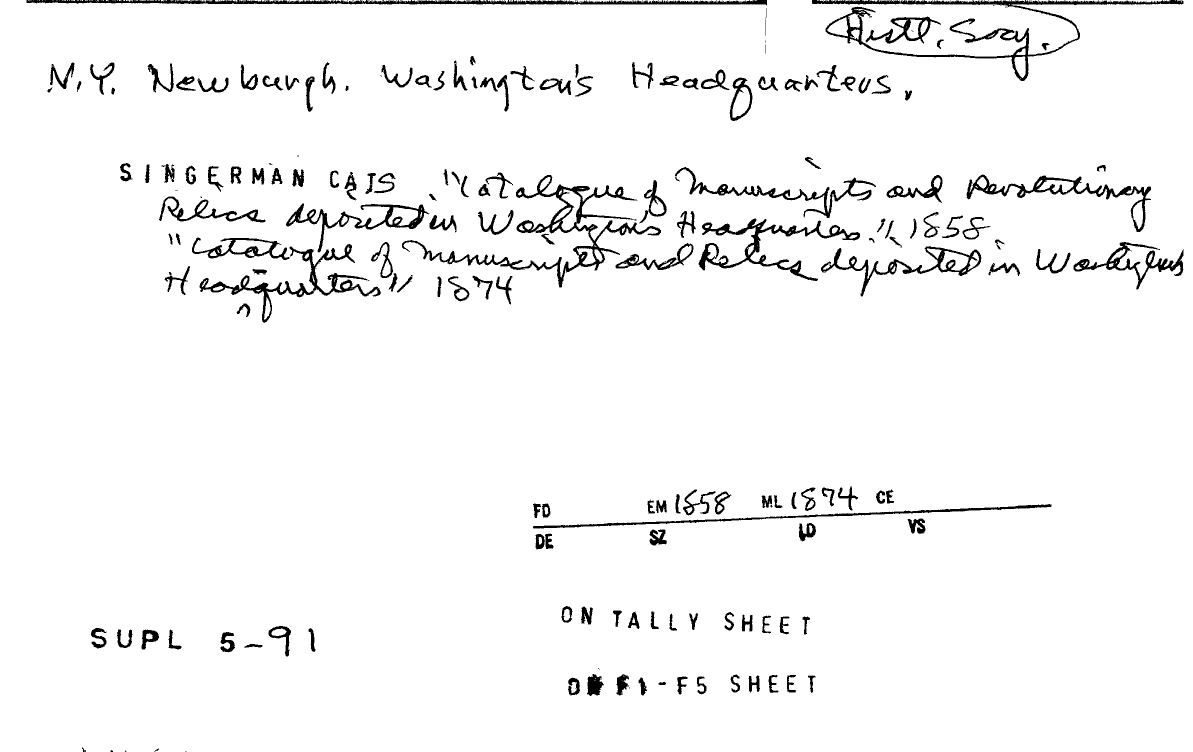 Histl. Socy.
N.Y. Newburgh. Washington's Headquarters.
SINGERMAN CATS "Catalogue of Manuscripts and Revolutionary
Relics deposited in Washington's Headquarters." 1858.
"Catalogue of Manuscripts and Relics deposited in Washington's
Headquarters" 1874
FD EM 1858 ML 1874 CE
DE SZ LD VS
ON TALLY SHEET
SUPL 5-91
ON F1-F5 SHEET